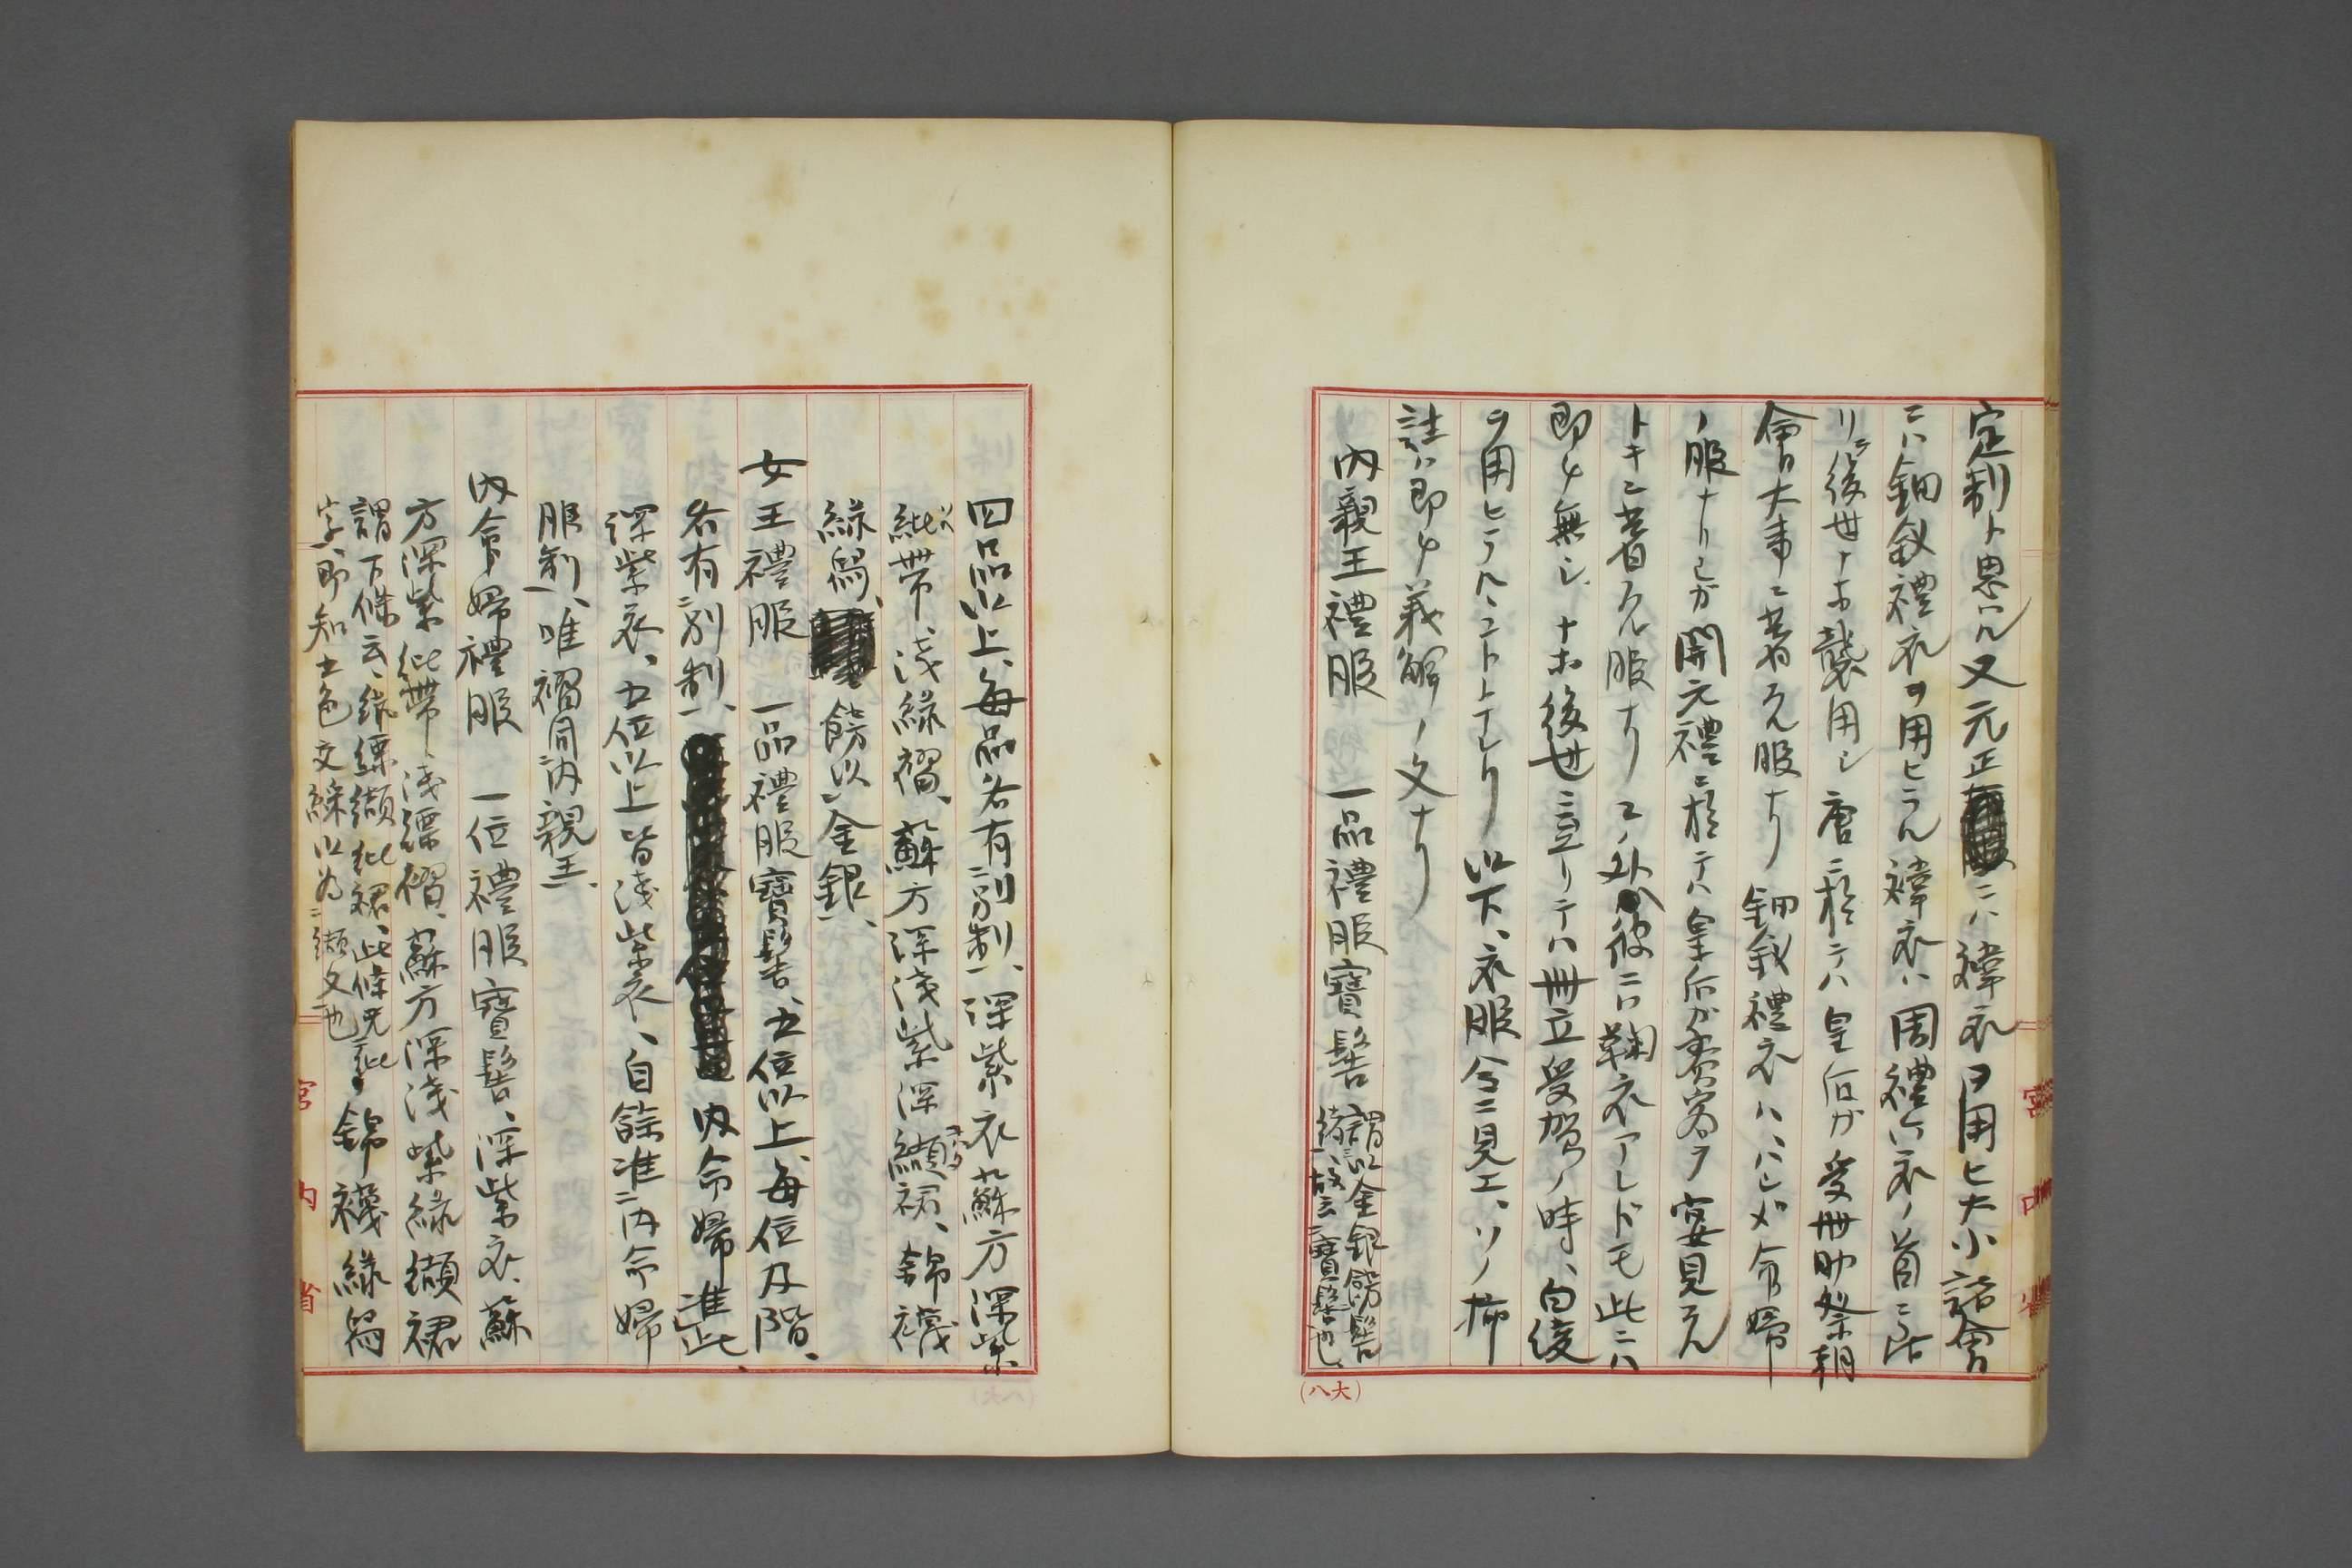 定制ト思ハル又元正ニハ褘衣ヲ用ヒ大小諸會
ニハ鈿釵禮衣ヲ用ヒラル褘衣ハ周禮六衣ノ首ニ居
リテ後世ナホ襲用シ唐ニ於テハ皇后ガ受冊助祭朝
會大事ニ著ラル服ナリ鈿釵禮衣ハハジメ命婦
ノ服ナリシガ開元禮ニ於テハ皇后ガ賓客ヲ宴見スル
トキニ著ラル服ナリコノ外彼ニハ鞠衣アレドモ此ニハ
即チ無シナホ後世ニ至リテハ冊立受賀ノ時、白綾
ヲ用ヒラルルコトトナレリ以下、衣服令ニ見エ、ソノ挿
註ハ即チ義解ノ文ナリ
内親王禮服 一品禮服寶髻 謂以金銀餝髻
緒、故云寶髻也、
四品以上、毎品各有別制、深紫衣、蘇方深紫
紕帶、淺綠褶、蘇方深淺紫深纈裙、錦襪
綠舄、餝以金銀、
女王禮服 一品禮服寶髻、五位以上、毎位及階、
各有別制、内命婦准此、
深紫衣、五位以上皆淺紫衣、自餘准内命婦
服制、唯褶同内親王、
内命婦禮服 一位禮服寶髻、深紫衣、蘇
方深紫紕帶、淺縹褶、蘇方深淺紫綠纈裙
謂下條云、綠縹纈紕裙、此條无紕
字、即知五色交綵以為纈文也 錦襪綠舄
宮内省
(八大)